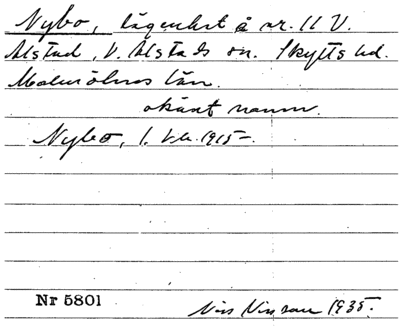 Nybo, lägenhet å nr. 11 V.
Alstad, V. Alstads sn. Skytts hd.
Malmöhus län.
okänt namn.
Nybo, 1. 1915–.
Nr 5801
Nils Nilsson 1935.